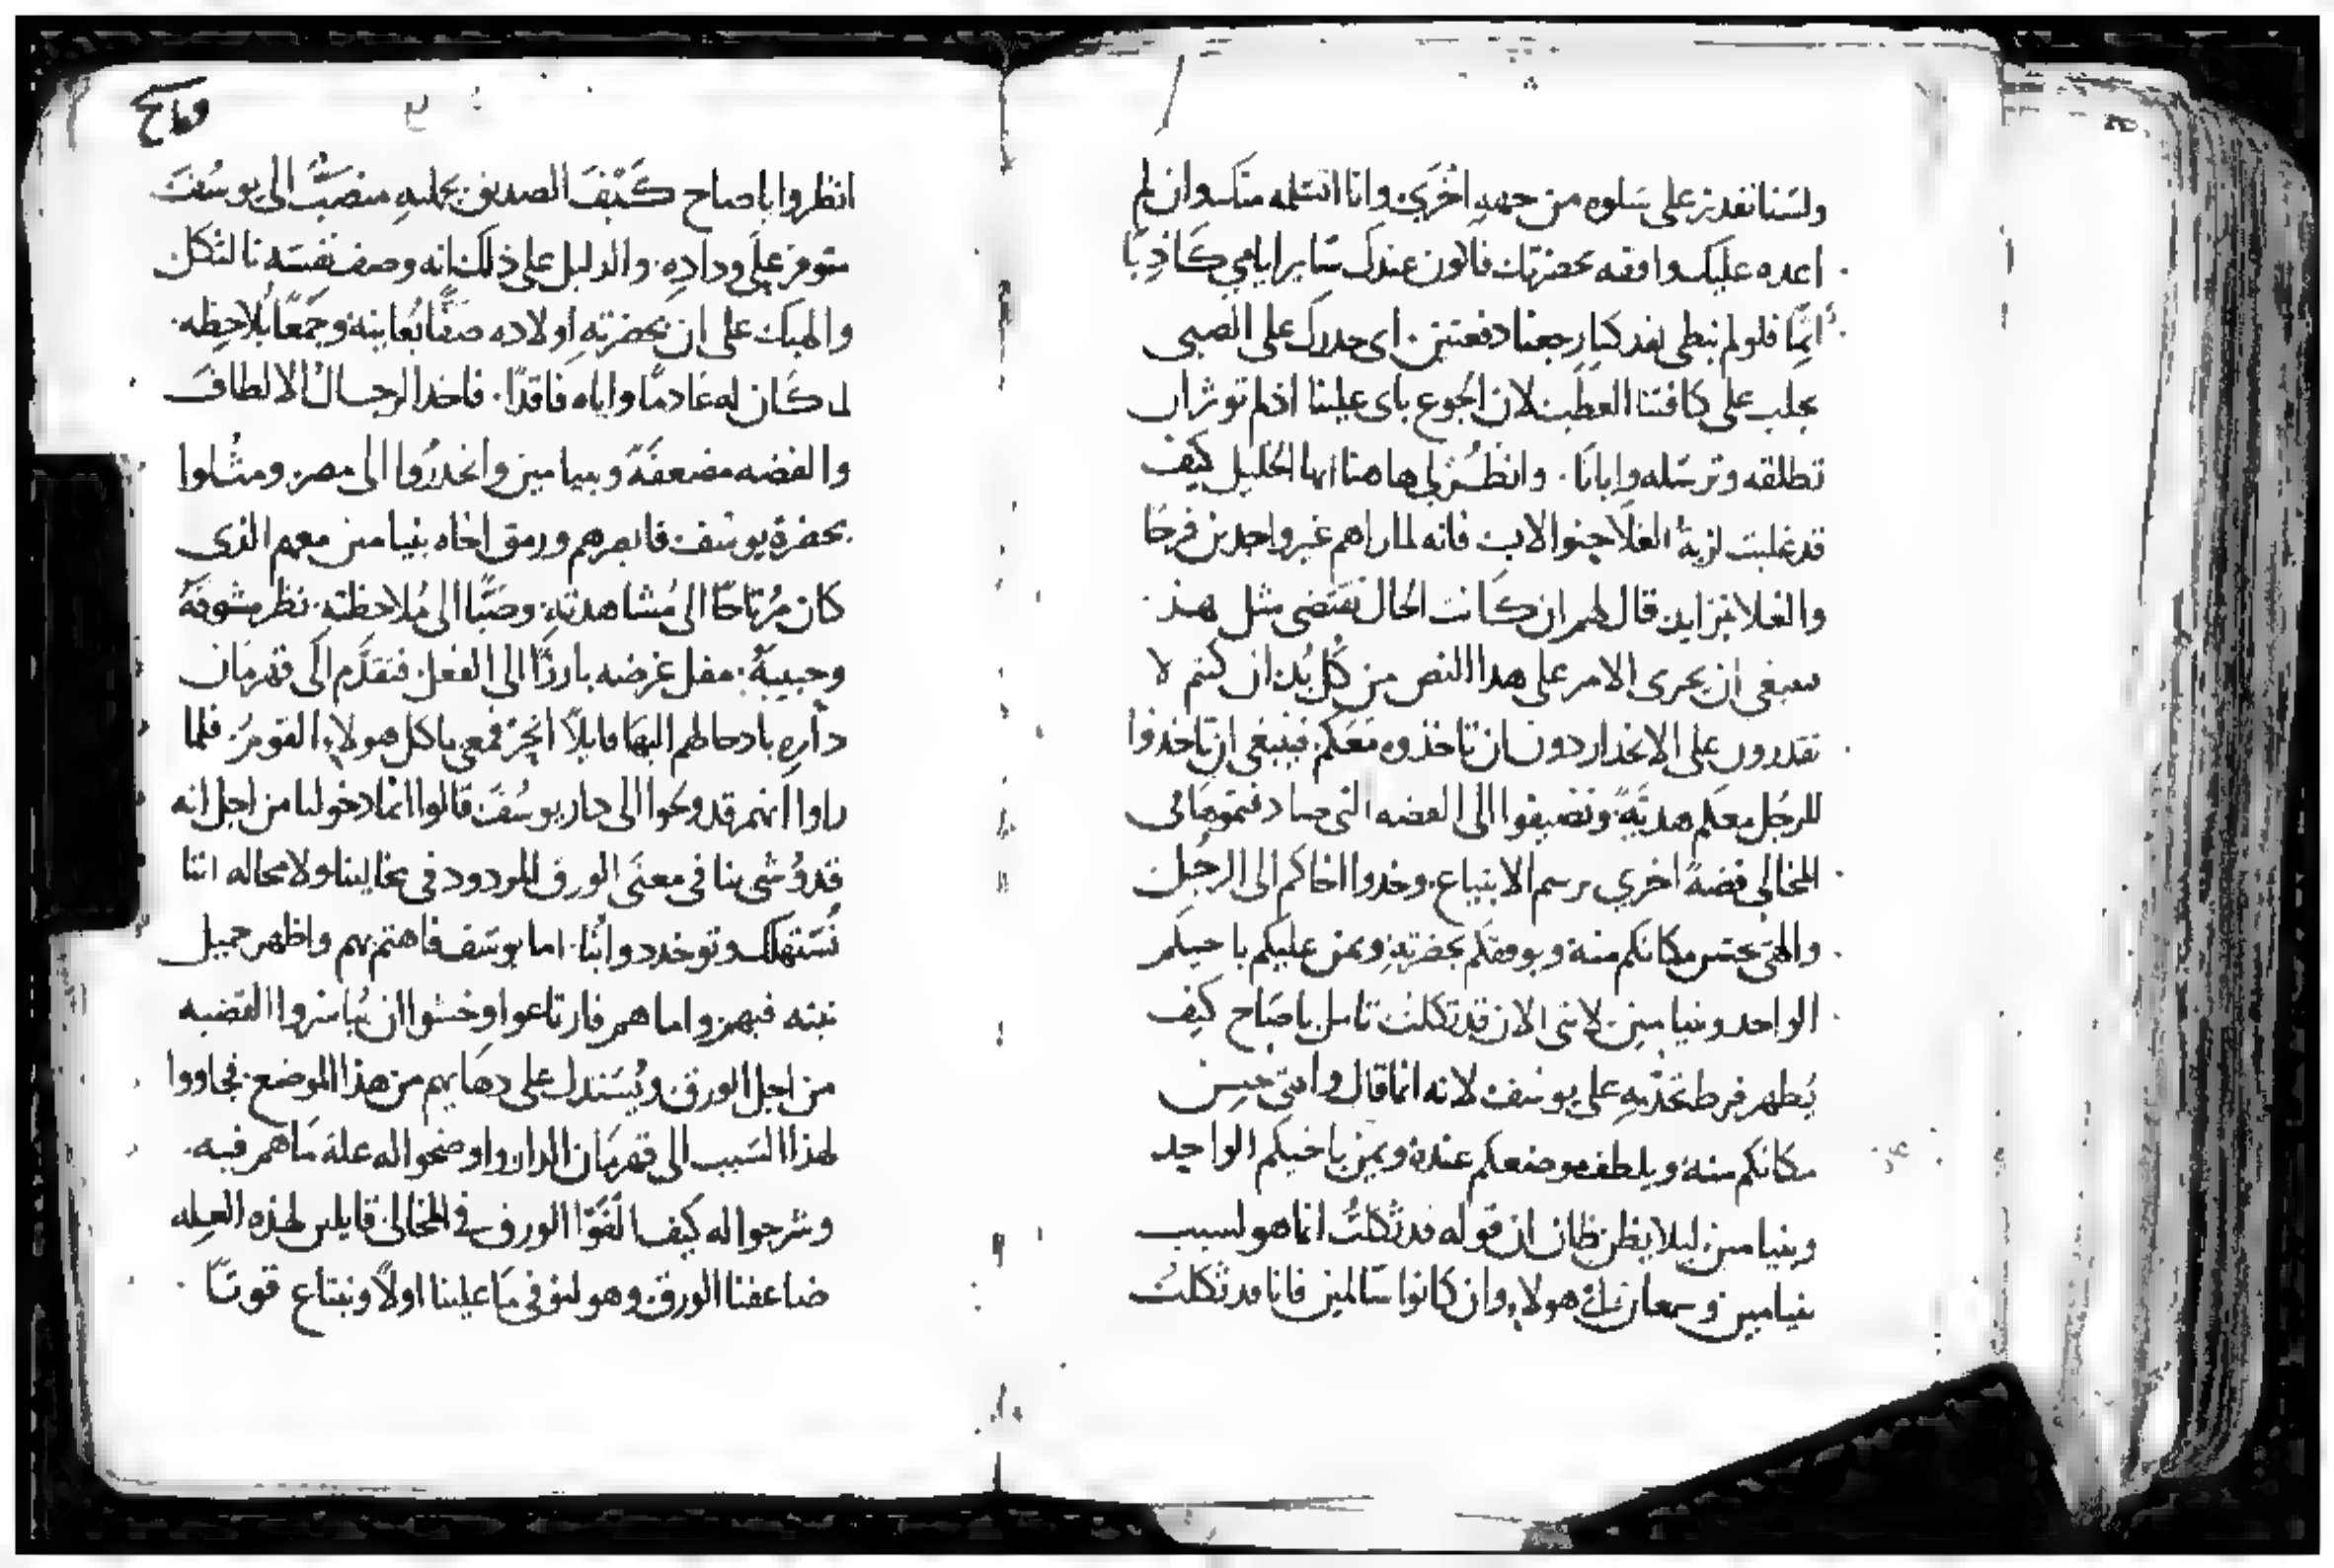 ولسنا نقدر على سلوه من جهه اخرى وانا اتسلمه منك وان لم
اعده عليك واقفه بحضرتك فاكون عندك سايرايامي كاذبًا
اثمًا فلو لم نبطي لقد كنا رجعنا دفعتين اي حدرك على الصبي
يجلب على كافتنا العطب لان الجوع ياتي علينا اذ لم توثر ان
تطلقه وترسله وايانا وانظر لي هاهنا ايها الخليل كيف
قد غلبت لزبة الغلا حنو الاب فانه لما راهم غير واجدين فرجا
والغلا متزايد قال لهم ان كانت الحال تقتضي مثل هذ
سبغي ان يجرى الامر على هدا النص من كل بُد ان كنتم لا
تقدرون على الانحدار دون ان تاخذوه معكم فينبغي ان تاخذوا
للرجل معكم هديَّة وتضيفوا الى الفضه التي صادفتموها في
المخالي فضة اخري برسم الابتياع وخدوا اخاكم الى الرجل
والهى يحسن مكانكم منه ويوفقكم بحضرته ويمن عليكم باخيكم
الواحد وبنيامين لانني الان قد ثكلت تامل ياصاح كيف
يُظهر فرط تحننه على يوسف لانه انما قال والهى يحسن
مكانكم منه ويلطف موضعكم عنده ويمن باخيكم الواحيد
وبنيامين ليلا يظن ظان ان قوله قد ثكلتُ انما هو لسبب
بنيامين وسمعان هولاء وان كانوا سالمين فانا قد ثكلت
انظروا ياصاح كَيْفَ الصديق بكليته منصَبّ الى يوسُفَ
متوفر على وداده والدليل على ذلك انه وصف نفسَه بالثكل
والهبك على ان بحضرته اولاده صفًّا يُعاينه وجَمعًا يُلاحظه
لما كان له عَادمًا واياه فاقدًا فاخد الرجال الالطافَ
والفضه مضعفَة وبنيامين وانحدرُوا الى مصر ومثلوا
بحضرة يوسف فابصرهم ورمق اخاه بنيامين معهم الذي
كان مُرتاحًا الى مُشاهدته وصَبًّا الى مُلاحظته نظر مشوقَهُ
وحبيبهُ غرضه بارزًا الى الفعل فتقدَّم الى قهرمان
دارِه بادخالهم اليها قايلاً انحر فمعي ياكل هولاء القومُ فلما
راوا انهم قد ولجوا الى دار يوسُفَ قالوا انما دخولنا من اجل انه
قد وُشي بنا في معنَى الورق المردود في مخالينا ولا محاله اننا
نُستهلك وتوخد دوابُّنا اما يوسَف فاهتم بهم واظهر جميل
نيته فيهم واما هم فارتاعوا وخشوا ان يُباشروا القضيه
من اجل الورق ويُستدل على دهايهم من هذا الموضع فجاووا
لهذا السَبب الى قهرمان الدار واوضحوا له علة مَا هم فيه
وشرحوا له كيف الفَوا الورق في المخالى قايلين لهذه العله
ضاعفنا الورق وهو لنوفي مَا علينا اولًا ونبتاع قوتًا